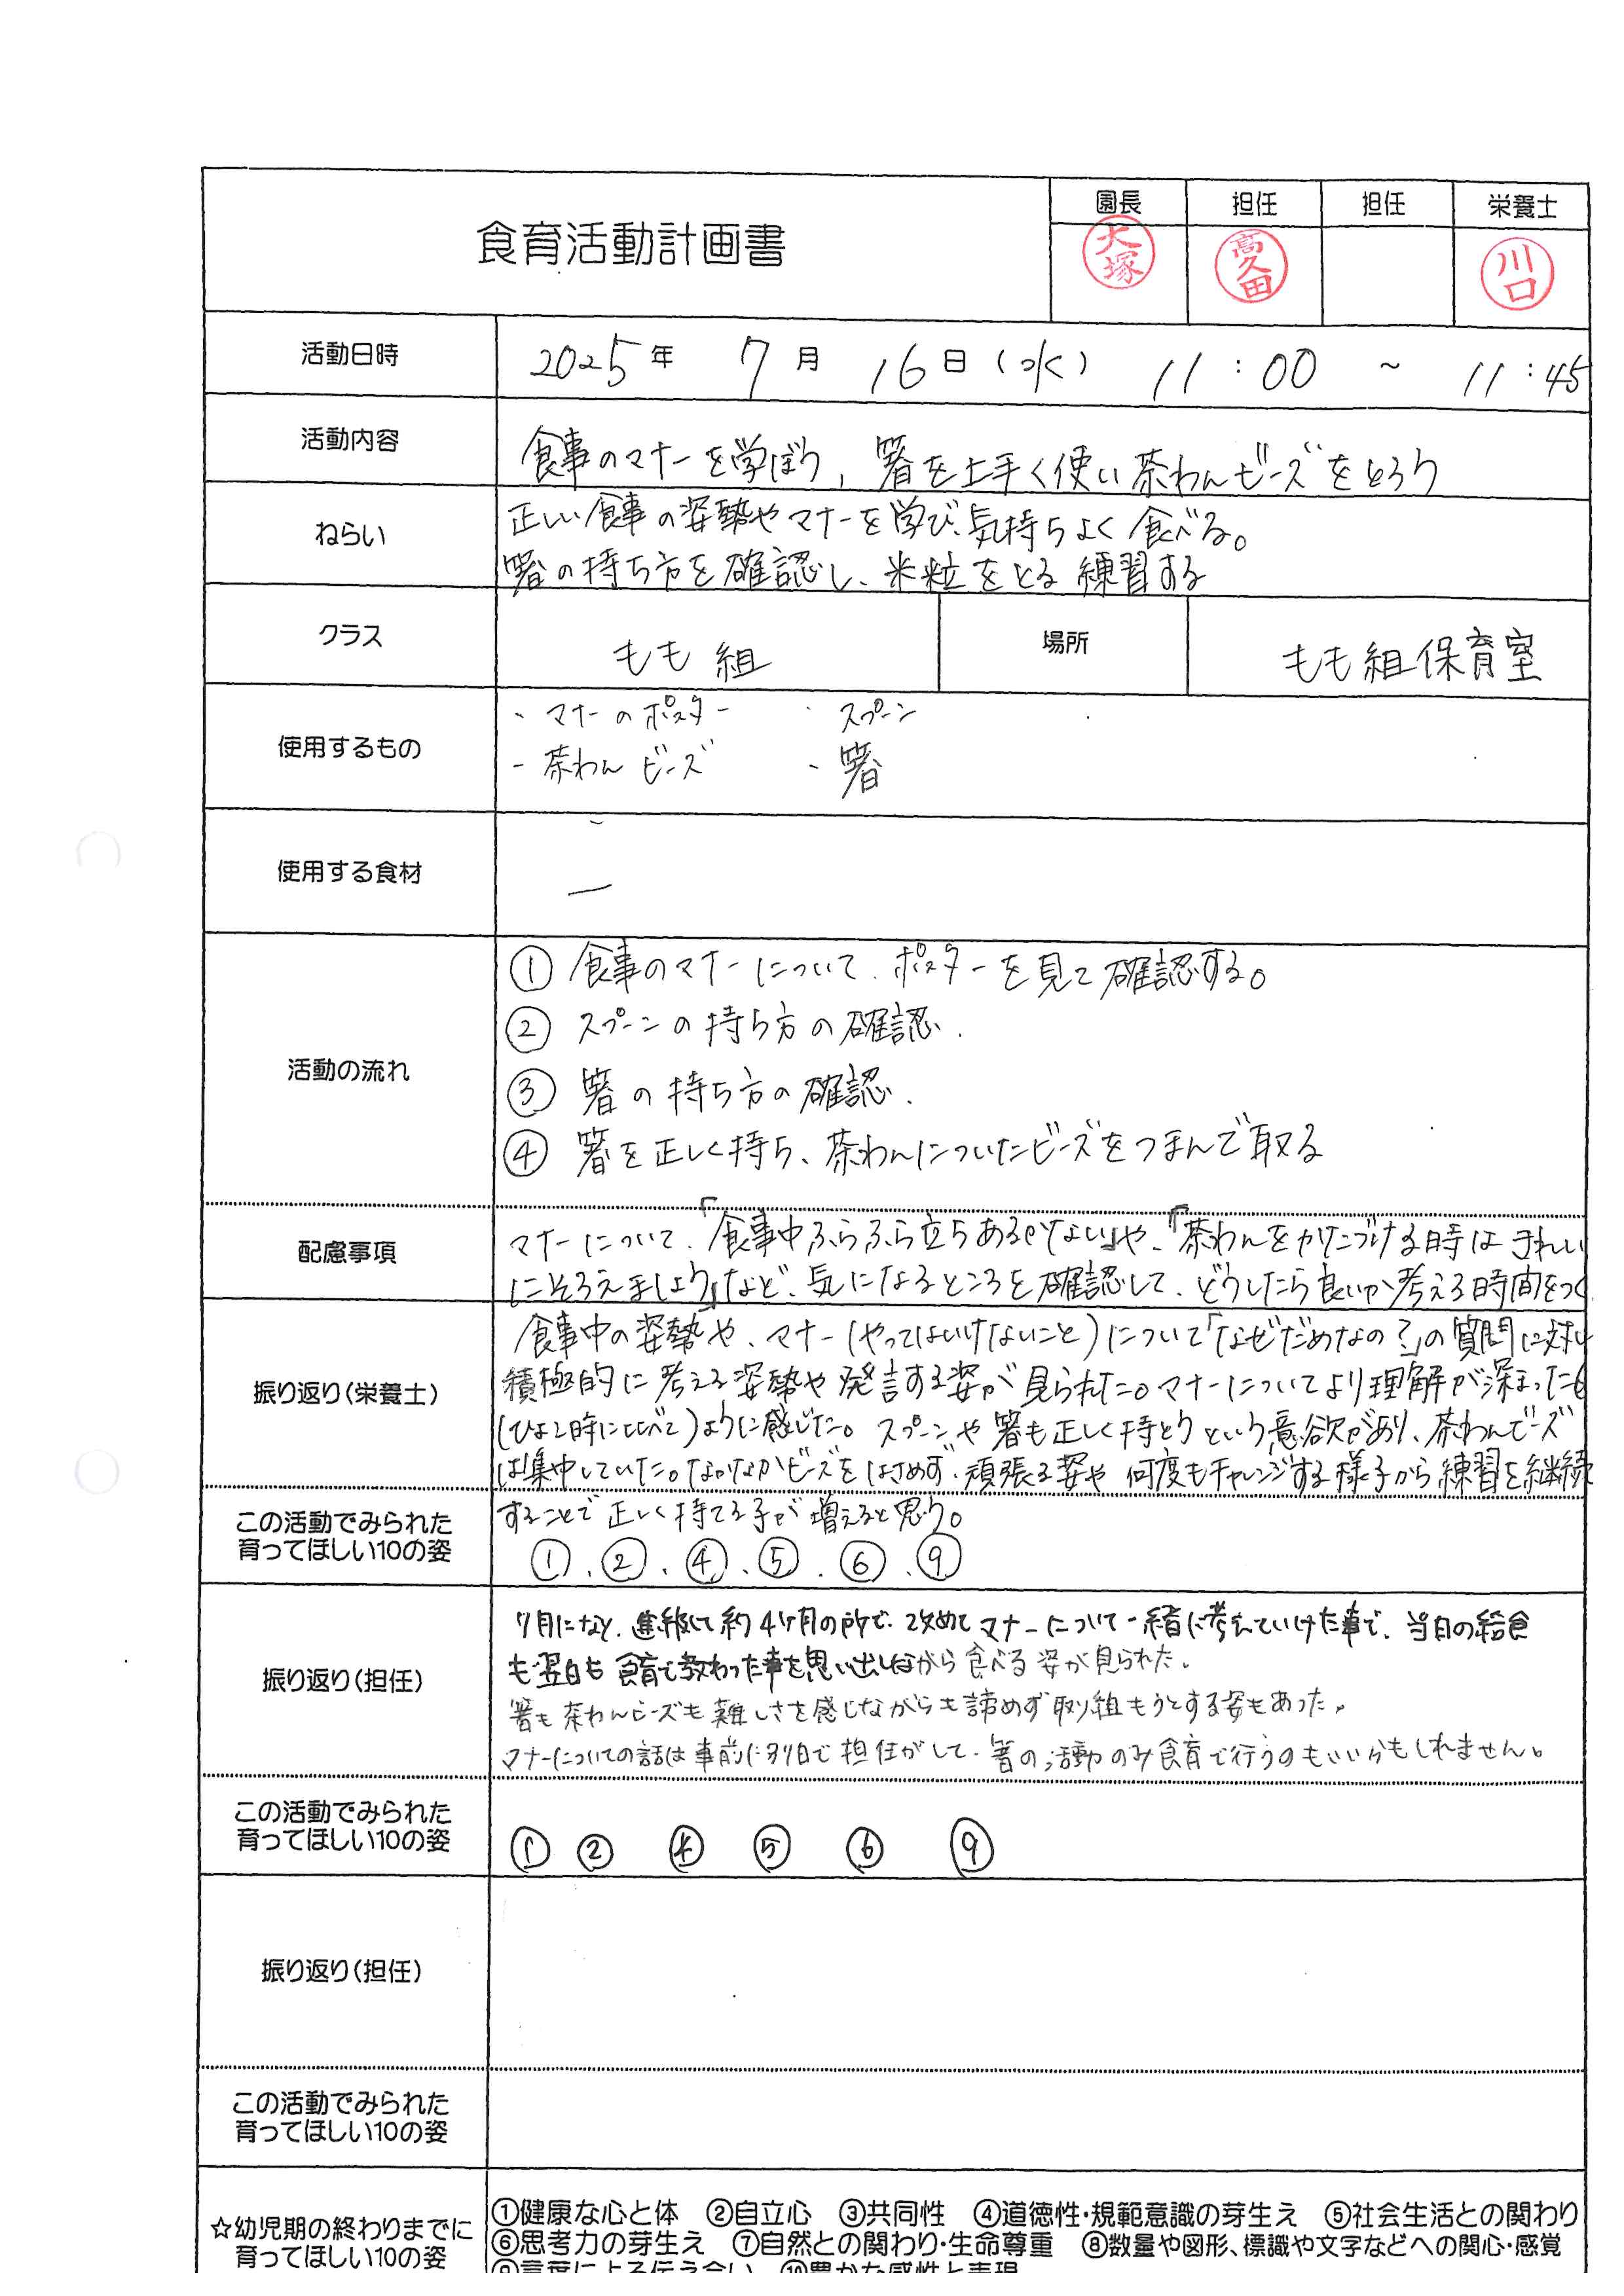 食育活動計画書
園長 担任 担任 栄養士
大塚 高久田 川口
活動日時 2025年 7月 16日(水) 11:00 ~ 11:45
活動内容 食事のマナーを学ぼう、箸を上手く使い茶わんビーズをとろう
ねらい 正しい食事の姿勢やマナーを学び、気持ちよく食べる。
箸の持ち方を確認し、米粒をとる練習する
クラス もも組 場所 もも組保育室
使用するもの ・マナーのポスター ・スプーン
・茶わんビーズ ・箸
使用する食材 ー
活動の流れ ① 食事のマナーについて、ポスターを見て確認する。
② スプーンの持ち方の確認.
③ 箸の持ち方の確認.
④ 箸を正しく持ち、茶わんについたビーズをつまんで取る
配慮事項 マナーについて、「食事中ふらふら立ちあるかない」や、「茶わんをかたづける時はきれい
にそろえましょう」など、気になるところを確認して、どうしたら良いか考える時間をつく
振り返り(栄養士) 食事中の姿勢や、マナー(やってはいけないこと)について「なぜだめなの?」の質問に対し
積極的に考える姿勢や発言する姿が見られた。マナーについてより理解が深まった
(ひよこ時に比べて)ように感じた。スプーンや箸も正しく持とうという意欲があり、茶わんビーズ
は集中していた。なかなかビーズをはさめず、頑張る姿や何度もチャレンジする様子から練習を継続
することで正しく持てる子が増えると思う。
この活動でみられた
育ってほしい10の姿 ①.②.④.⑤.⑥.⑨
振り返り(担任) 7月になり、進級して約4ヶ月の所で、改めてマナーについて一緒に考えていけた事で、当日の給食
も翌日も食育で教わった事を思い出しながら食べる姿が見られた。
箸も茶わんビーズも難しさを感じながらも諦めず取り組もうとする姿もあった。
マナーについての話は事前に別日で担任がして、箸の活動のみ食育で行うのもいいかもしれません。
この活動でみられた
育ってほしい10の姿 ① ② ④ ⑤ ⑥ ⑨
振り返り(担任)
この活動でみられた
育ってほしい10の姿
☆幼児期の終わりまでに
育ってほしい10の姿
①健康な心と体 ②自立心 ③共同性 ④道徳性・規範意識の芽生え ⑤社会生活との関わり
⑥思考力の芽生え ⑦自然との関わり・生命尊重 ⑧数量や図形、標識や文字などへの関心・感覚
⑨言葉による伝え合い ⑩豊かな感性と表現